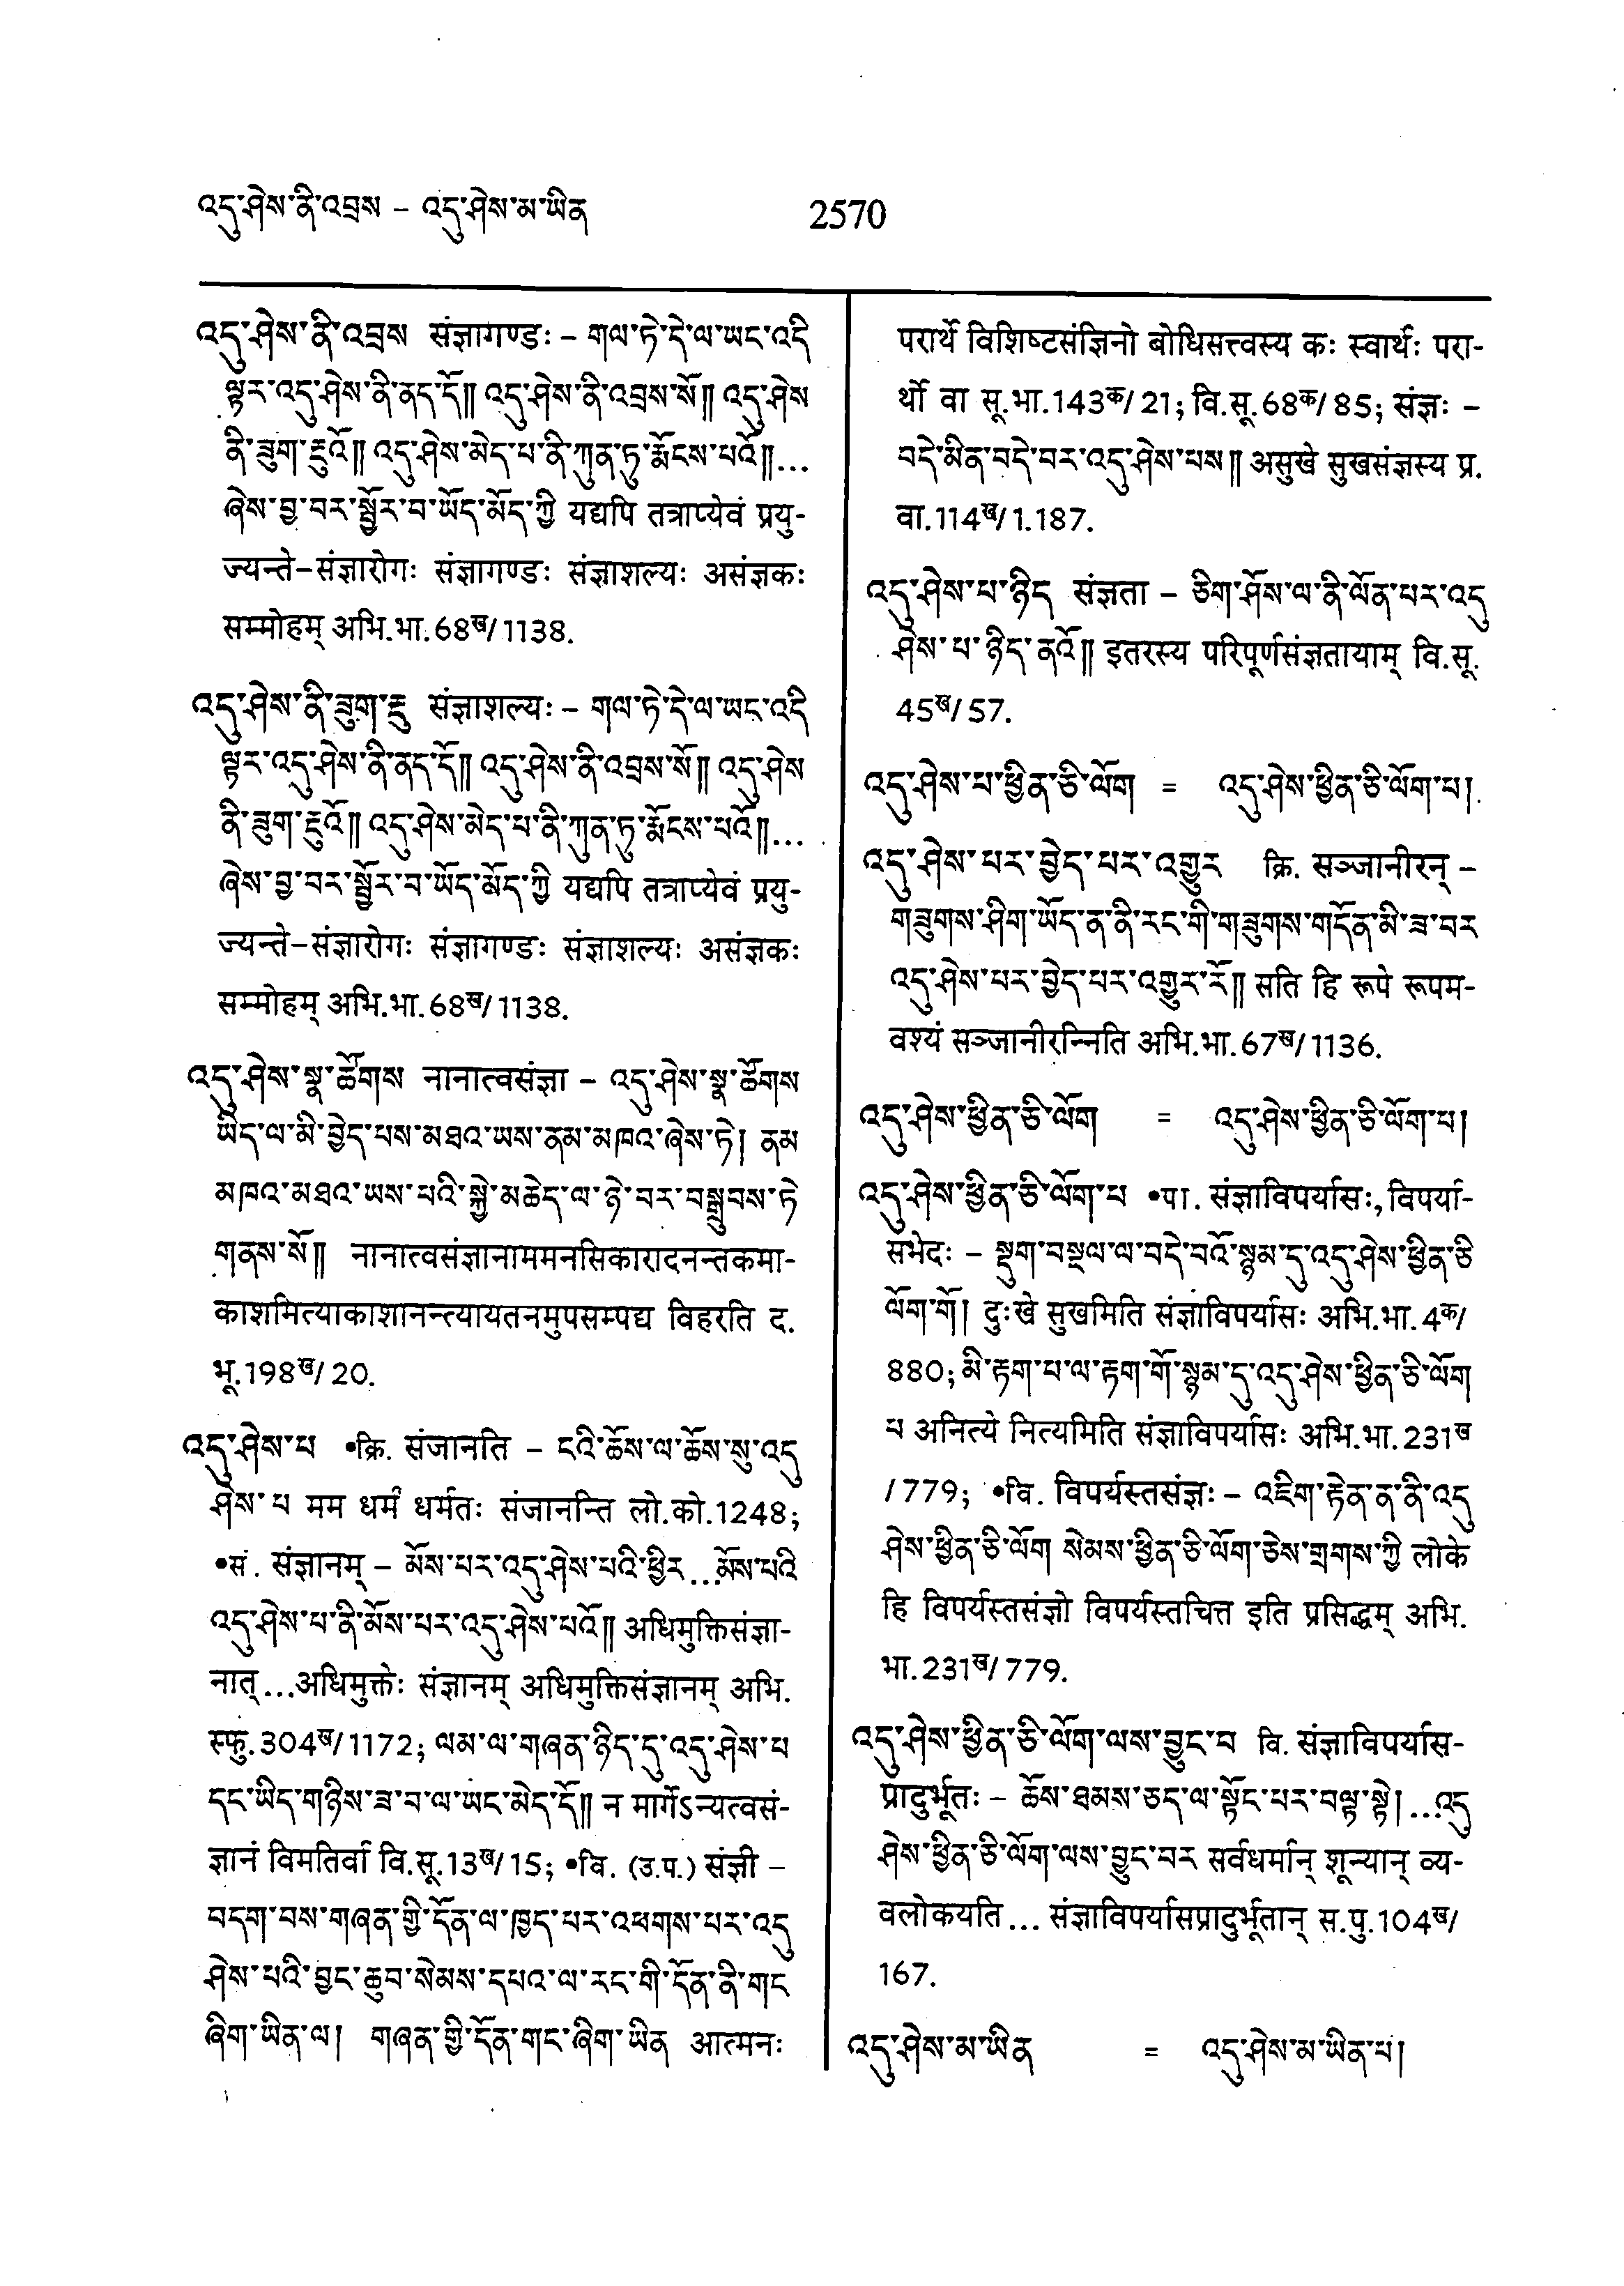 འདུ་ཤེས་ནི་འབྲས – འདུ་ཤེས་མ་ཡིན
2570
འདུ་ཤེས་ནི་འབྲས संज्ञागण्डः – གལ་ཏེ་དེ་ལ་ཡང་འདི
ལྟར་འདུ་ཤེས་ནི་ནད་དོ༎ འདུ་ཤེས་ནི་འབྲས་སོ༎ འདུ་ཤེས
ནི་ཟུག་རྔུའོ༎ འདུ་ཤེས་མེད་པ་ནི་ཀུན་ཏུ་རྨོངས་པའོ༎...
ཞེས་བྱ་བར་སྦྱོར་བ་ཡོད་མོད་ཀྱི यद्यपि तत्राप्येवं प्रयु-
ज्यन्ते–संज्ञारोगः संज्ञागण्डः संज्ञाशल्यः असंज्ञकः
सम्मोहम् अभि.भा.68ख/1138.
འདུ་ཤེས་ནི་ཟུག་རྔུ संज्ञाशल्यः – གལ་ཏེ་དེ་ལ་ཡང་འདི
ལྟར་འདུ་ཤེས་ནི་ནད་དོ༎ འདུ་ཤེས་ནི་འབྲས་སོ༎ འདུ་ཤེས
ནི་ཟུག་རྔུའོ༎ འདུ་ཤེས་མེད་པ་ནི་ཀུན་ཏུ་རྨོངས་པའོ༎...
ཞེས་བྱ་བར་སྦྱོར་བ་ཡོད་མོད་ཀྱི यद्यपि तत्राप्येवं प्रयु-
ज्यन्ते–संज्ञारोगः संज्ञागण्डः संज्ञाशल्यः असंज्ञकः
सम्मोहम् अभि.भा.68ख/1138.
འདུ་ཤེས་སྣ་ཚོགས नानात्वसंज्ञा – འདུ་ཤེས་སྣ་ཚོགས
ཡིད་ལ་མི་བྱེད་པས་མཐའ་ཡས་ནམ་མཁའ་ཞེས་ཏེ། ནམ
མཁའ་མཐའ་ཡས་པའི་སྐྱེ་མཆེད་ལ་ཉེ་བར་བསྒྲུབས་ཏེ
གནས་སོ༎ नानात्वसंज्ञानाममनसिकारादनन्तकमा-
काशमित्याकाशानन्त्यायतनमुपसम्पद्य विहरति द.
भू.198ख/20.
འདུ་ཤེས་པ •क्रि. संजानति – ངའི་ཆོས་ལ་ཆོས་སུ་འདུ
ཤེས་པ मम धर्मं धर्मतः संजानन्ति लो.को.1248;
•सं. संज्ञानम् – མོས་པར་འདུ་ཤེས་པའི་ཕྱིར...མོས་པའི
འདུ་ཤེས་པ་ནི་མོས་པར་འདུ་ཤེས་པའོ༎ अधिमुक्तिसंज्ञा-
नात्...अधिमुक्तेः संज्ञानम् अधिमुक्तिसंज्ञानम् अभि.
स्फु.304ख/1172; ལམ་ལ་གཞན་ཉིད་དུ་འདུ་ཤེས་པ
དང་ཡིད་གཉིས་ཟ་བ་ལ་ཡང་མེད་དོ༎ न मार्गेऽन्यत्वसं-
ज्ञानं विमतिर्वा वि.सू.13ख/15; •वि. (उ.प.) संज्ञी –
བདག་བས་གཞན་གྱི་དོན་ལ་ཁྱད་པར་འཕགས་པར་འདུ
ཤེས་པའི་བྱང་ཆུབ་སེམས་དཔའ་ལ་རང་གི་དོན་ནི་གང
ཞིག་ཡིན་ལ། གཞན་གྱི་དོན་གང་ཞིག་ཡིན आत्मनः
परार्थे विशिष्टसंज्ञिनो बोधिसत्त्वस्य कः स्वार्थः परा-
र्थो वा सू.भा.143क/21; वि.सू.68क/85; संज्ञः –
བདེ་མིན་བདེ་བར་འདུ་ཤེས་པས༎ असुखे सुखसंज्ञस्य प्र.
वा.114ख/1.187.
འདུ་ཤེས་པ་ཉིད संज्ञता – ཅིག་ཤོས་ལ་ནི་ལོན་པར་འདུ
ཤེས་པ་ཉིད་ནའོ༎ इतरस्य परिपूर्णसंज्ञतायाम् वि.सू.
45ख/57.
འདུ་ཤེས་པ་ཕྱིན་ཅི་ལོག = འདུ་ཤེས་ཕྱིན་ཅི་ལོག་པ།
འདུ་ཤེས་པར་བྱེད་པར་འགྱུར क्रि. सञ्जानीरन् –
གཟུགས་ཤིག་ཡོད་ན་ནི་རང་གི་གཟུགས་གདོན་མི་ཟ་བར
འདུ་ཤེས་པར་བྱེད་པར་འགྱུར་རོ༎ सति हि रूपे रूपम-
वश्यं सञ्जानीरन्निति अभि.भा.67ख/1136.
འདུ་ཤེས་ཕྱིན་ཅི་ལོག = འདུ་ཤེས་ཕྱིན་ཅི་ལོག་པ།
འདུ་ཤེས་ཕྱིན་ཅི་ལོག་པ •पा. संज्ञाविपर्यासः, विपर्या-
सभेदः – སྡུག་བསྔལ་ལ་བདེ་བའོ་སྙམ་དུ་འདུ་ཤེས་ཕྱིན་ཅི
ལོག་གོ། दुःखे सुखमिति संज्ञाविपर्यासः अभि.भा.4क/
880; མི་རྟག་པ་ལ་རྟག་གོ་སྙམ་དུ་འདུ་ཤེས་ཕྱིན་ཅི་ལོག
པ अनित्ये नित्यमिति संज्ञाविपर्यासः अभि.भा.231ख
/779; •वि. विपर्यस्तसंज्ञः – འཇིག་རྟེན་ན་ནི་འདུ
ཤེས་ཕྱིན་ཅི་ལོག སེམས་ཕྱིན་ཅི་ལོག་ཅེས་གྲགས་ཀྱི लोके
हि विपर्यस्तसंज्ञो विपर्यस्तचित्त इति प्रसिद्धम् अभि.
भा.231ख/779.
འདུ་ཤེས་ཕྱིན་ཅི་ལོག་ལས་བྱུང་བ वि. संज्ञाविपर्यास-
प्रादुर्भूतः – ཆོས་ཐམས་ཅད་ལ་སྟོང་པར་བལྟ་སྟེ། ...འདུ
ཤེས་ཕྱིན་ཅི་ལོག་ལས་བྱུང་བར सर्वधर्मान् शून्यान् व्य-
वलोकयति... संज्ञाविपर्यासप्रादुर्भूतान् स.पु.104ख/
167.
འདུ་ཤེས་མ་ཡིན = འདུ་ཤེས་མ་ཡིན་པ།